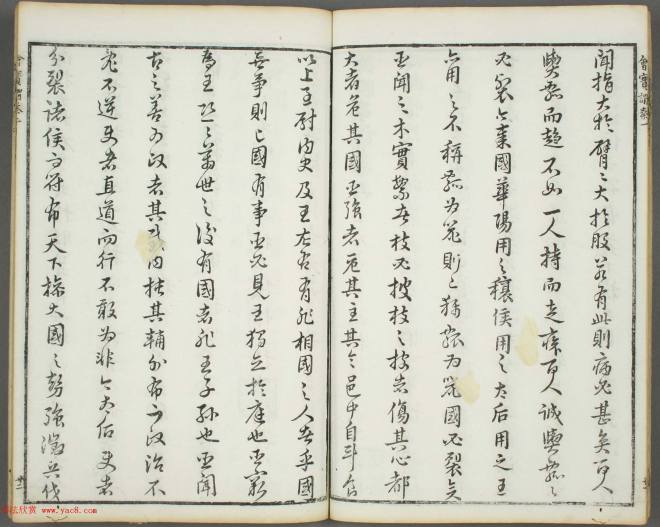 聞指大於臂〻大於股若有此則病必甚矣百人
輿瓢而趨不如一人持而走疾百人誠輿瓢〻
必裂今秦國華陽用之穰侯用之太后用之王
亦用之不稱瓢為器則已稱瓢為器國必裂矣
臣聞之木實繁者枝必披枝之披者傷其心都
大者危其國臣強者危其主其令邑中自斗食
以上至尉內史及王左右有非相國之人者乎國
無事則已國有事臣必見王獨立於庭也臣竊
為王恐〻萬世之後有國者非王子孫也臣聞
古之善為政者其威內扶其輔外布而政治不
亂不逆使者直道而行不敢為非今太后使者
分裂諸侯而符布天下操大國之勢強徵兵伐
書法欣賞 www.yac8.com